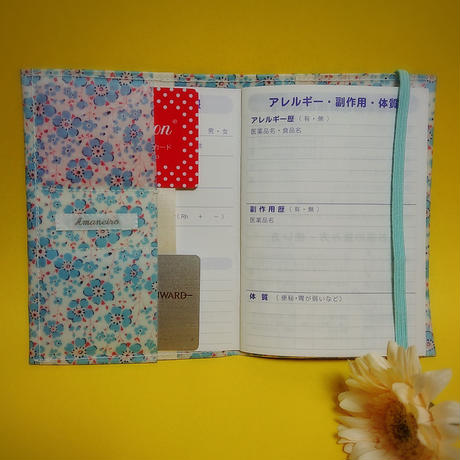 on®
カード
Amaneiro
NWARD–
男・女
(Rh + −)
アレルギー・副作用・体質
アレルギー歴（有・無）
医薬品名・食品名
副作用歴（有・無）
医薬品名
体質（便秘・胃が弱いなど）